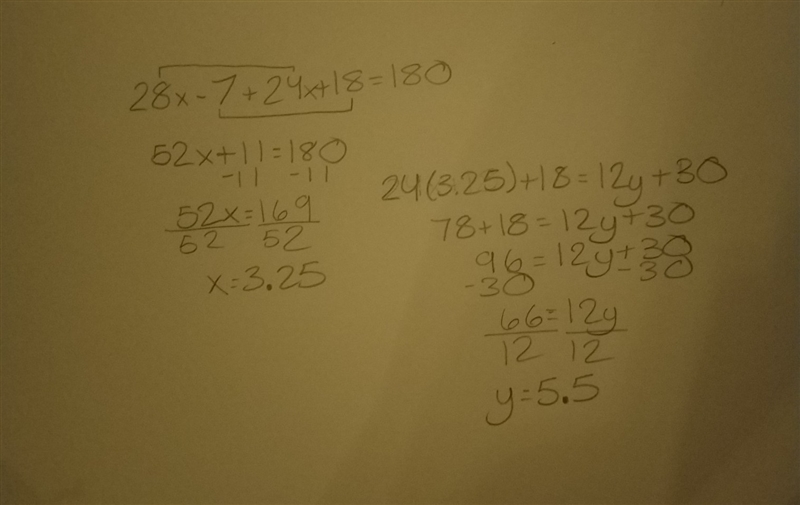 28x-7+24x+18=180
52x+11=180
-11 -11
52x=169
52 52
x=3.25
24(3.25)+18=12y+30
78+18=12y+30
96=12y+30
-30 -30
66=12y
12 12
y=5.5